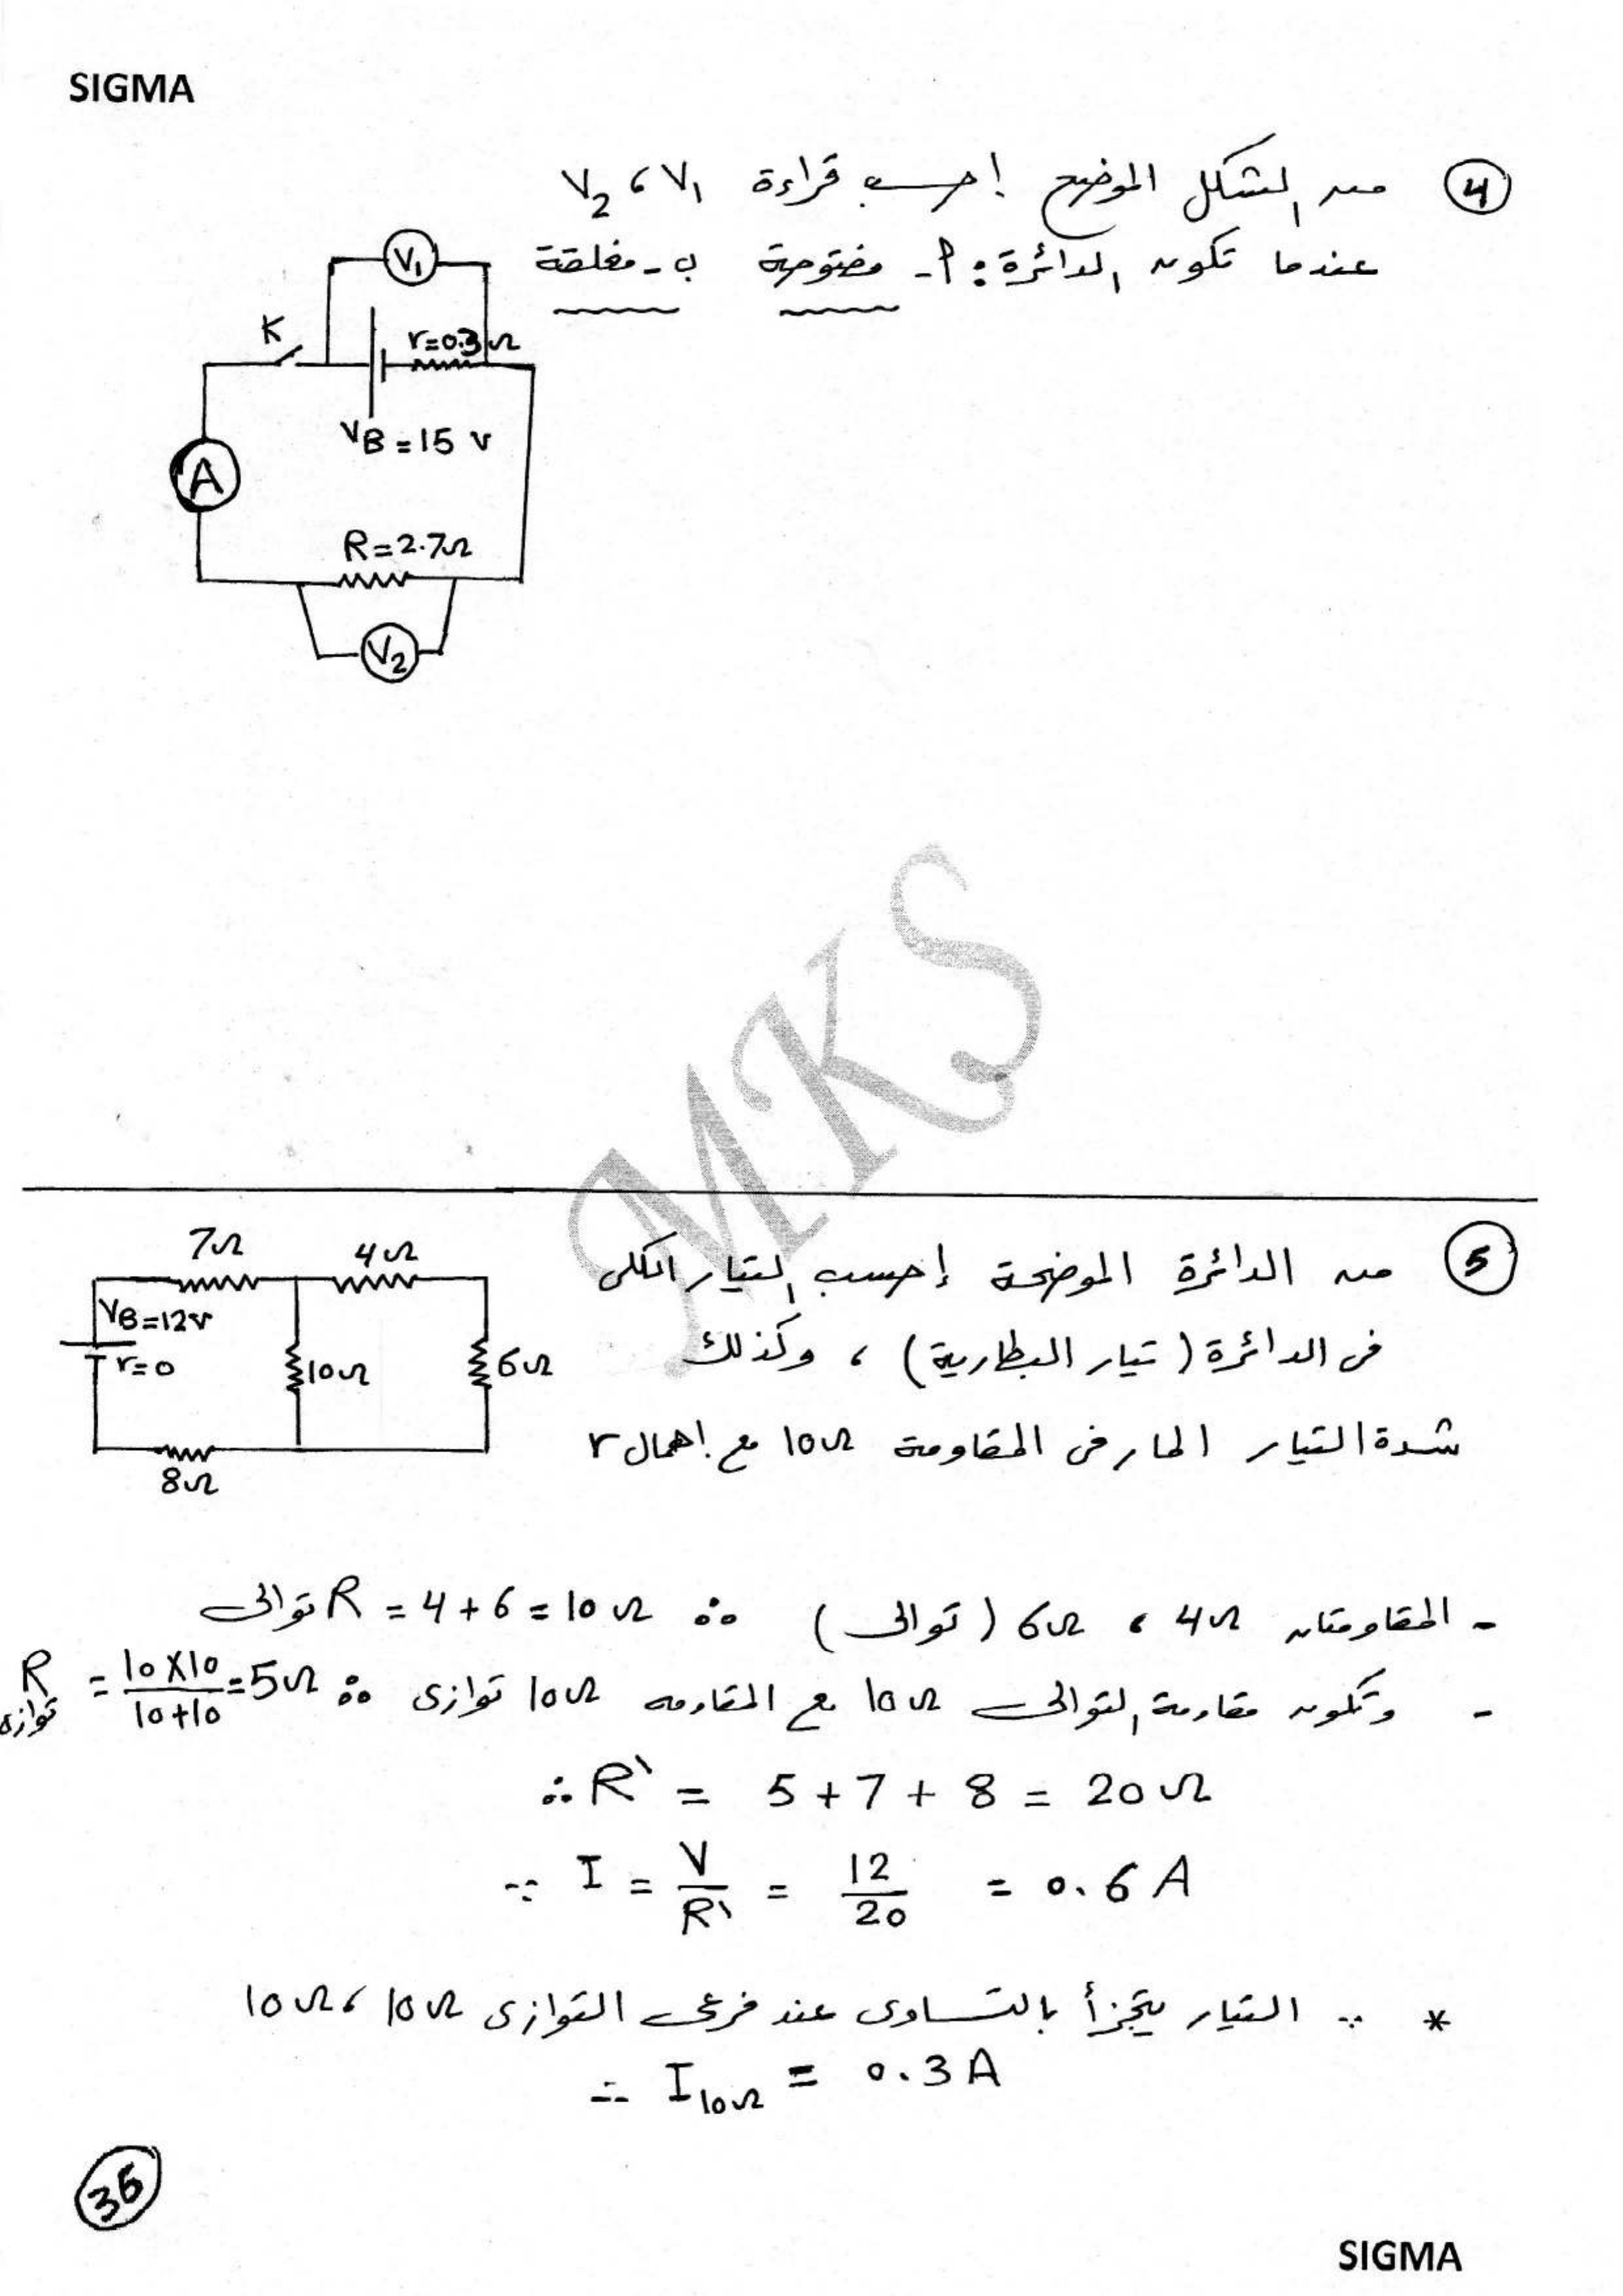 SIGMA
④ من الشكل الموضح إحسب قراءة V₁ ، V₂
عندما تكون الدائرة : أ- مفتوحة ب- مغلقة
V₁
K
r=0.3Ω
V_B=15 v
A
R=2.7Ω
V₂
MKS
⑤ من الدائرة الموضحة إحسب التيار الكلى
فى الدائرة (تيار البطارية) ، وكذلك
شدة التيار المار فى المقاومة 10Ω مع إهمال r
7Ω
4Ω
V_B=12v
r=0
10Ω
6Ω
8Ω
- المقاومتان 4Ω ، 6Ω (توالى) ∴ R توالى = 4+6 = 10Ω
- وتكون مقاومة التوالى 10Ω مع المقاومه 10Ω توازى ∴ R توازى = 10X10/10+10 = 5Ω
∴ R` = 5 + 7 + 8 = 20Ω
∵ I = V/R` = 12/20 = 0.6 A
* ∵ التيار يتجزأ بالتساوى عند فرعى التوازى 10Ω ، 10Ω
∴ I₁₀Ω = 0.3 A
36
SIGMA